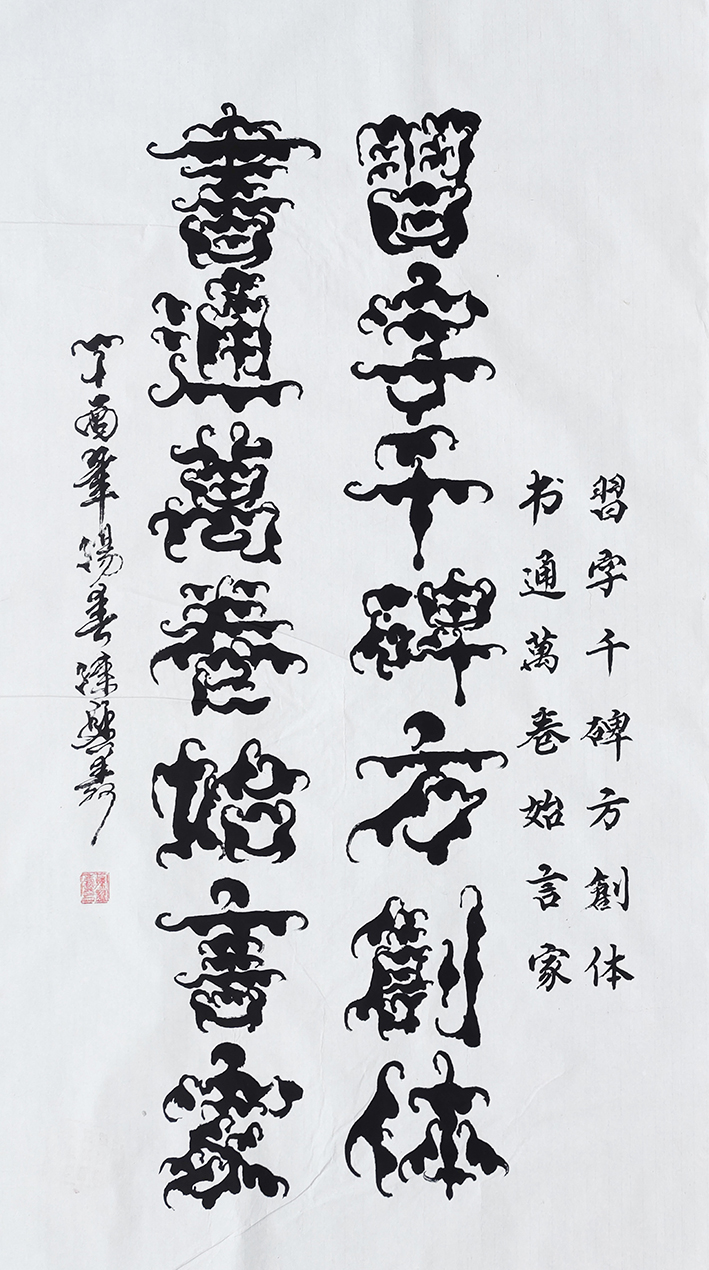 習字千碑方創体
书通萬卷始言家
習字千碑方創体
書通萬卷始言家
丁酉